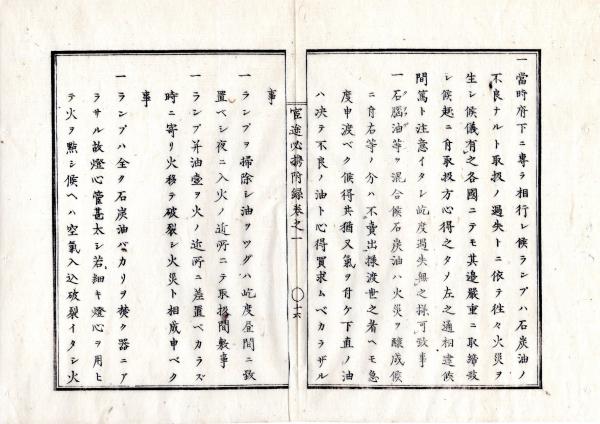 一當時府下ニ專ラ相行レ候ランプハ石炭油ノ
不良ナルト取扱ノ過失トニ依テ往々火災ヲ
生レ候儀有之各國ニテモ其邊嚴重ニ取締致
シ候趣ニ付取扱方心得之タメ左之通相達候
間篤ト注意イタシ屹度過失無之樣可致事
一石腦油等ヲ混合候石炭油ハ火災ヲ釀成候
ニ付右等ノ分ハ不賣出樣渡世之者ヘモ急
度申渡ベク候得共猶又氣ヲ付ケ下直ノ油
ハ决テ不良ノ油ト心得買求ムベカラザル
官途必携附録卷之一
十六
事
一ランプヲ掃除シ油ヲツグハ屹度昼間ニ致
置ベシ夜ニ入火ノ近所ニテ取扱間敷事
一ランプ并油壺ヲ火ノ近所ニ差置ベカラズ
時ニ寄リ火移テ破裂シ火災ト相成申ベク
事
一ランプハ全ク石炭油バカリヲ焚ク器ニア
ラサル故燈心管甚太シ若細キ燈心ヲ用ヒ
テ火ヲ點シ候ヘハ空氣入込破裂イタシ火